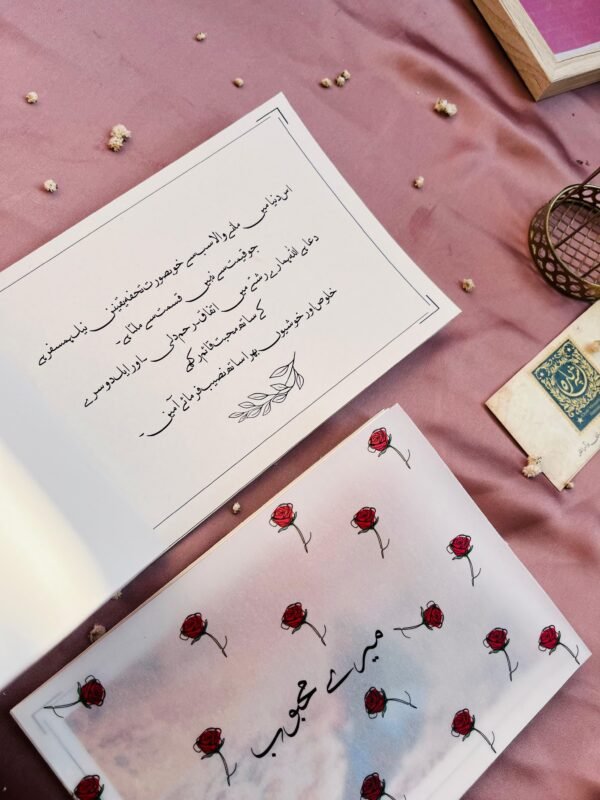 اس دنیا میں ملنے والا سب سے خوبصورت تحفہ یقیناً نیک ہمسفر ہے
جو قیمت سے نہیں قسمت سے ملتا ہے۔
دعا ہے اللہ ہمارے رشتے میں اتفاق، رحم دلی اور ایک دوسرے
کے ساتھ محبت قائم رکھے
خلوص اور خوشیوں بھرا ساتھ نصیب فرمائے آمین۔
میرے محبوب